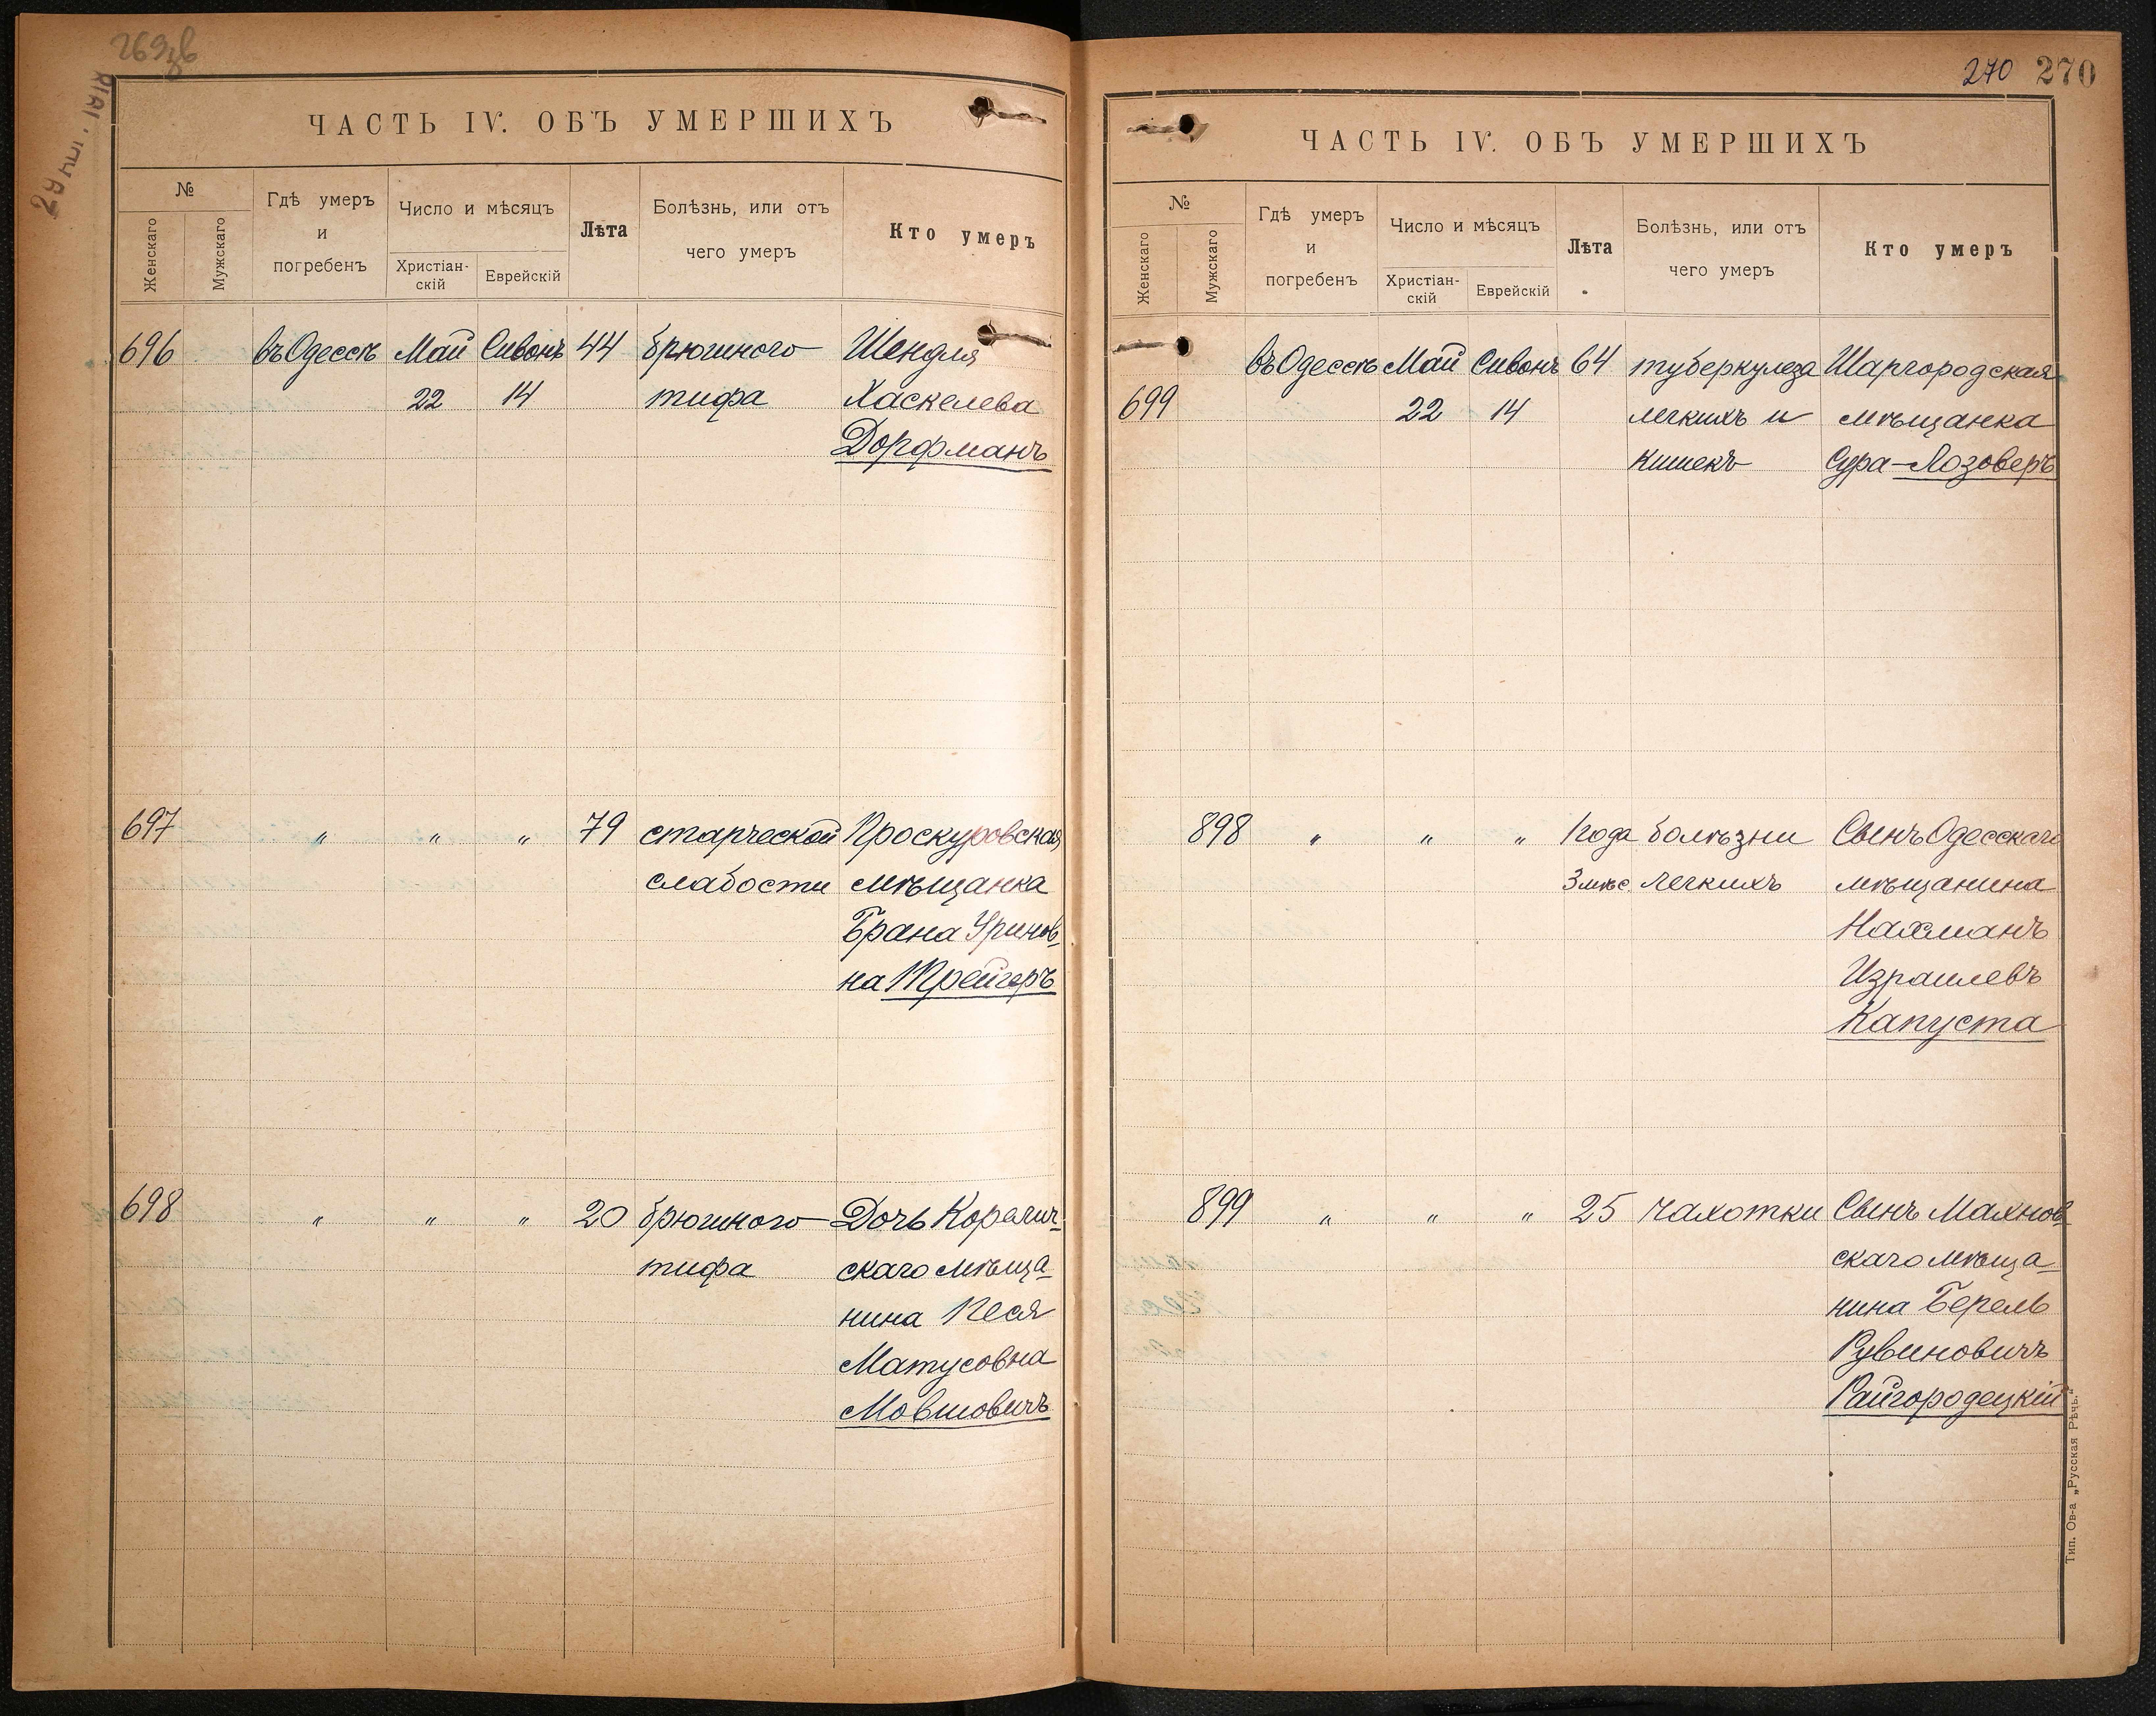 ЧАСТЬ IV. ОБЪ УМЕРШИХЪ
№
Женскаго
Мужскаго
Гдѣ умеръ
и
погребенъ
Число и мѣсяцъ
Христіан-
скій
Еврейскій
Лѣта
Болѣзнь, или отъ
чего умеръ
Кто умеръ
696 въ Одессѣ Май Сивонъ 44 брюшного Шендля
22 14 тифа Хаскелева
Дорфманъ
697 " " " 79 старческой Проскуровская
слабости мѣщанка
Брана Уринов-
на Трейгеръ
698 " " " 20 брюшного Дочь Корелич-
тифа скаго мѣща-
нина Песя
Матусовна
Мовшовичъ
270 270
ЧАСТЬ IV. ОБЪ УМЕРШИХЪ
№
Женскаго
Мужскаго
Гдѣ умеръ
и
погребенъ
Число и мѣсяцъ
Христіан-
скій
Еврейскій
Лѣта
Болѣзнь, или отъ
чего умеръ
Кто умеръ
въ Одессѣ Май Сивонъ 64 туберкулеза Шаргородская
699 22 14 легкихъ и мѣщанка
кишекъ Сура-Лозоверъ
898 " " " 1 года болѣзни Сынъ Одесскаго
3 мѣс. легкихъ мѣщанина
Нахманъ
Израилевъ
Капуста
899 " " " 25 чахотки Сынъ Махнов-
скаго мѣща-
нина Берель
Рувиновичъ
Райгородецкій
Тип. Ов-а „Русская Рѣчь“